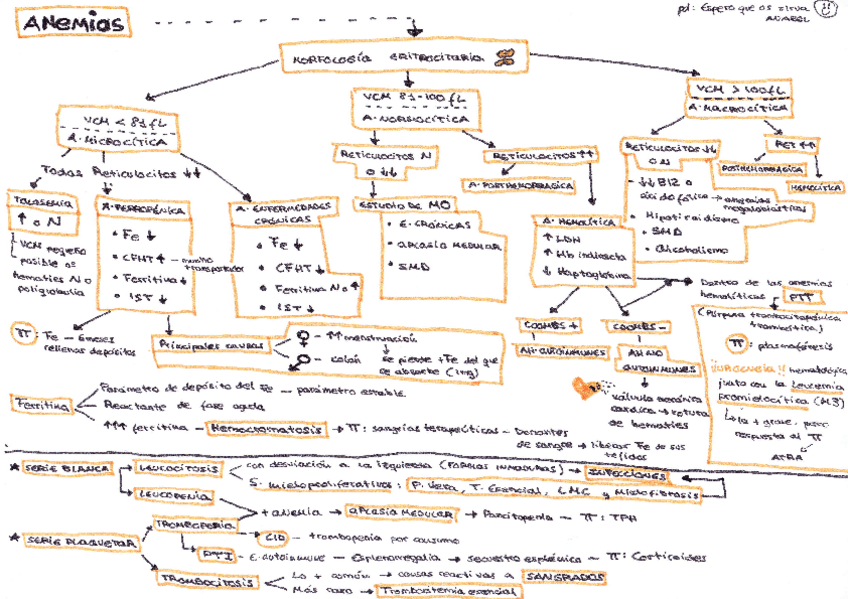 pd: Espero que os sirva
ANABEL
ANEMIAS
MORFOLOGÍA ERITROCITARIA
VCM < 81 fL
A. MICROCÍTICA
VCM 81-100 fL
A. NORMOCÍTICA
VCM > 100 fL
A. MACROCÍTICA
Todas Reticulocitos ↓↓
RETICULOCITOS N
O ↓↓
RETICULOCITOS ↑↑
RETICULOCITOS ↓↓
O N
RET ↑↑
POSTHEMORRAGICA
HEMOLÍTICA
TALASEMIA
↑ o N
VCM pequeño
posible os
hematíes N o
poliglobulia
A. FERROPÉNICA
• Fe ↓
• CFHT ↑ — mucho transportador
• Ferritina ↓
• IST ↓
A. ENFERMEDADES
CRÓNICAS
• Fe ↓
• CFHT ↓
• Ferritina N o ↑
• IST ↓
ESTUDIO DE MO
• E. CRÓNICAS
• APLASIA MEDULAR
• SMD
A. POSTHEMORRAGICA
A. HEMOLÍTICA
↑ LDH
↑ Hb indirecta
↓ Haptoglobina
• ↓↓ B12 o
ácido fólico → anemias
megaloblásticas
• Hipotiroidismo
• SMD
• Alcoholismo
COOMBS +
COOMBS -
AH AUTOINMUNES
AH NO
AUTOINMUNES
Válvula mecánica
cardiaca → rotura
de hematíes
Dentro de las anemias
hemolíticas → PTT
(Púrpura trombocitopénica
trombótica)
TT: plasmaféresis
¡¡URGENCIA!! hematológica
junto con la Leucemia
promielocítica (M3)
la + grave, pero
respuesta al TT
ATRA
TT: Fe — 6 meses
rellenos depósitos
Principales causas
♀ — ↑↑ menstruación
♂ — colon
se pierde + Fe del que
se absorbe (1mg)
Ferritina
Parámetro de depósito del Fe — parámetro estable.
Reactante de fase aguda
↑↑↑ ferritina — Hemocromatosis → TT: sangrías terapéuticas — Donantes
de sangre → liberar Fe de sus
tejidos
* SERIE BLANCA
LEUCOCITOSIS
con desviación a la izquierda (FORMAS INMADURAS) → INFECCIONES
S. mieloproliferativos: P. Vera, T. Esencial, LMC y Mielofibrosis
LEUCOPENIA
+ anemia → APLASIA MEDULAR → Pancitopenia — TT: TPH
* SERIE PLAQUETAR
TROMBOPENIA
CID — trombopenia por consumo
PTI — E. autoinmune — Esplenomegalia → secuestro esplénico — TT: Corticoides
TROMBOCITOSIS
Lo + común → causas reactivas a SANGRADOS
Más raro → Trombocitemia esencial